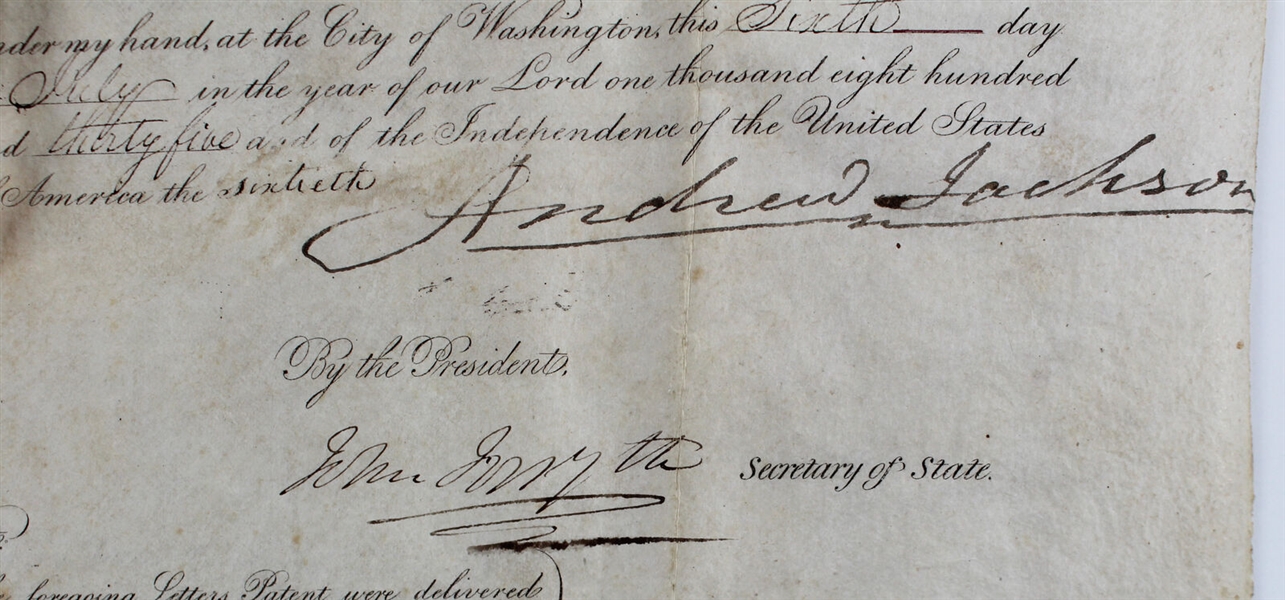 nder my hand, at the City of Washington, this Sixth day
July in the year of our Lord one thousand eight hundred
d thirty five and of the Independence of the United States
America the sixtieth
Andrew Jackson
By the President.
John Forsyth Secretary of State.
foregoing Letters Patent were delivered